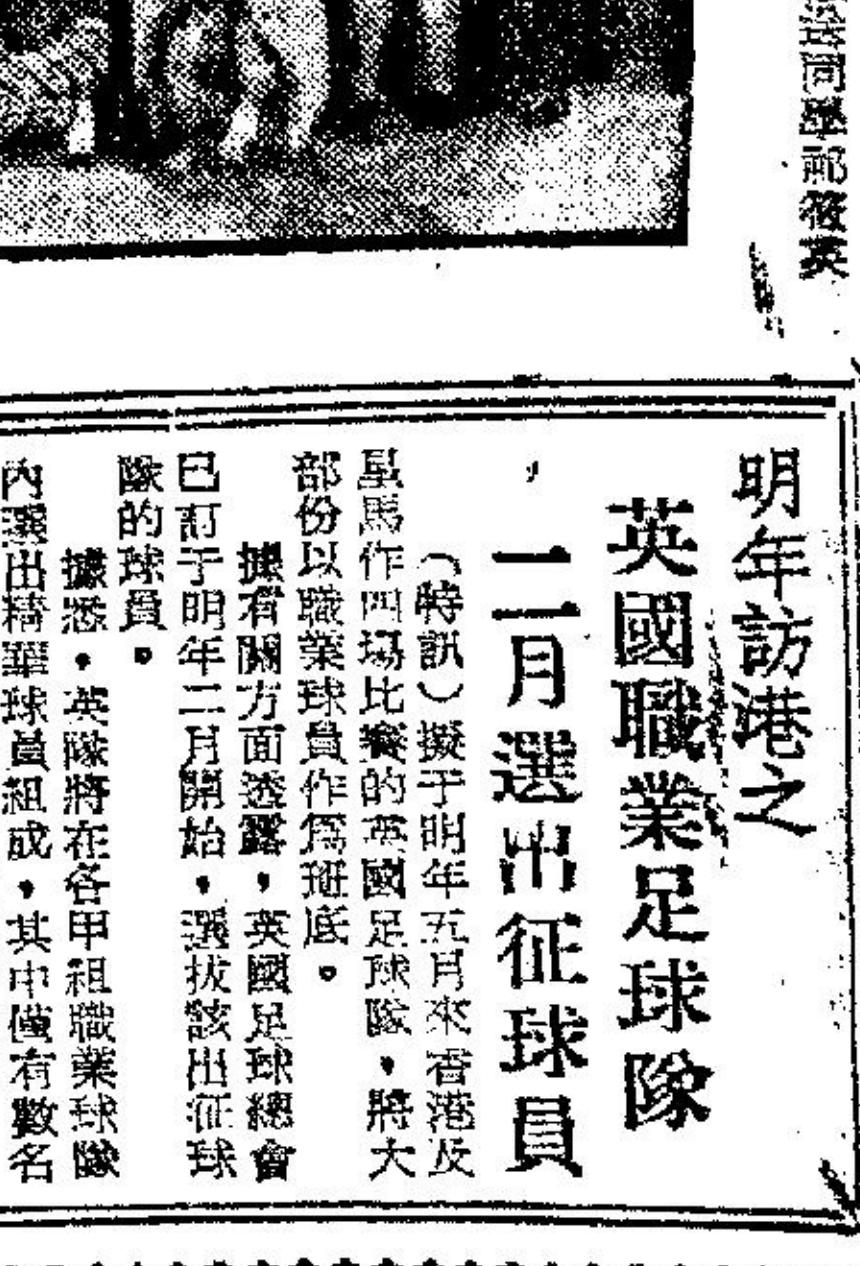 明年訪港之
英國職業足球隊
二月選出征球員
（特訊）擬于明年五月來香港及
星馬作四場比賽的英國足球隊，將大
部份以職業球員作爲班底。
據有關方面透露，英國足球總會
已訂于明年二月開始，選拔該出征球
隊的球員。
據悉，英隊將在各甲組職業球隊
內選出精華球員組成，其中僅有數名